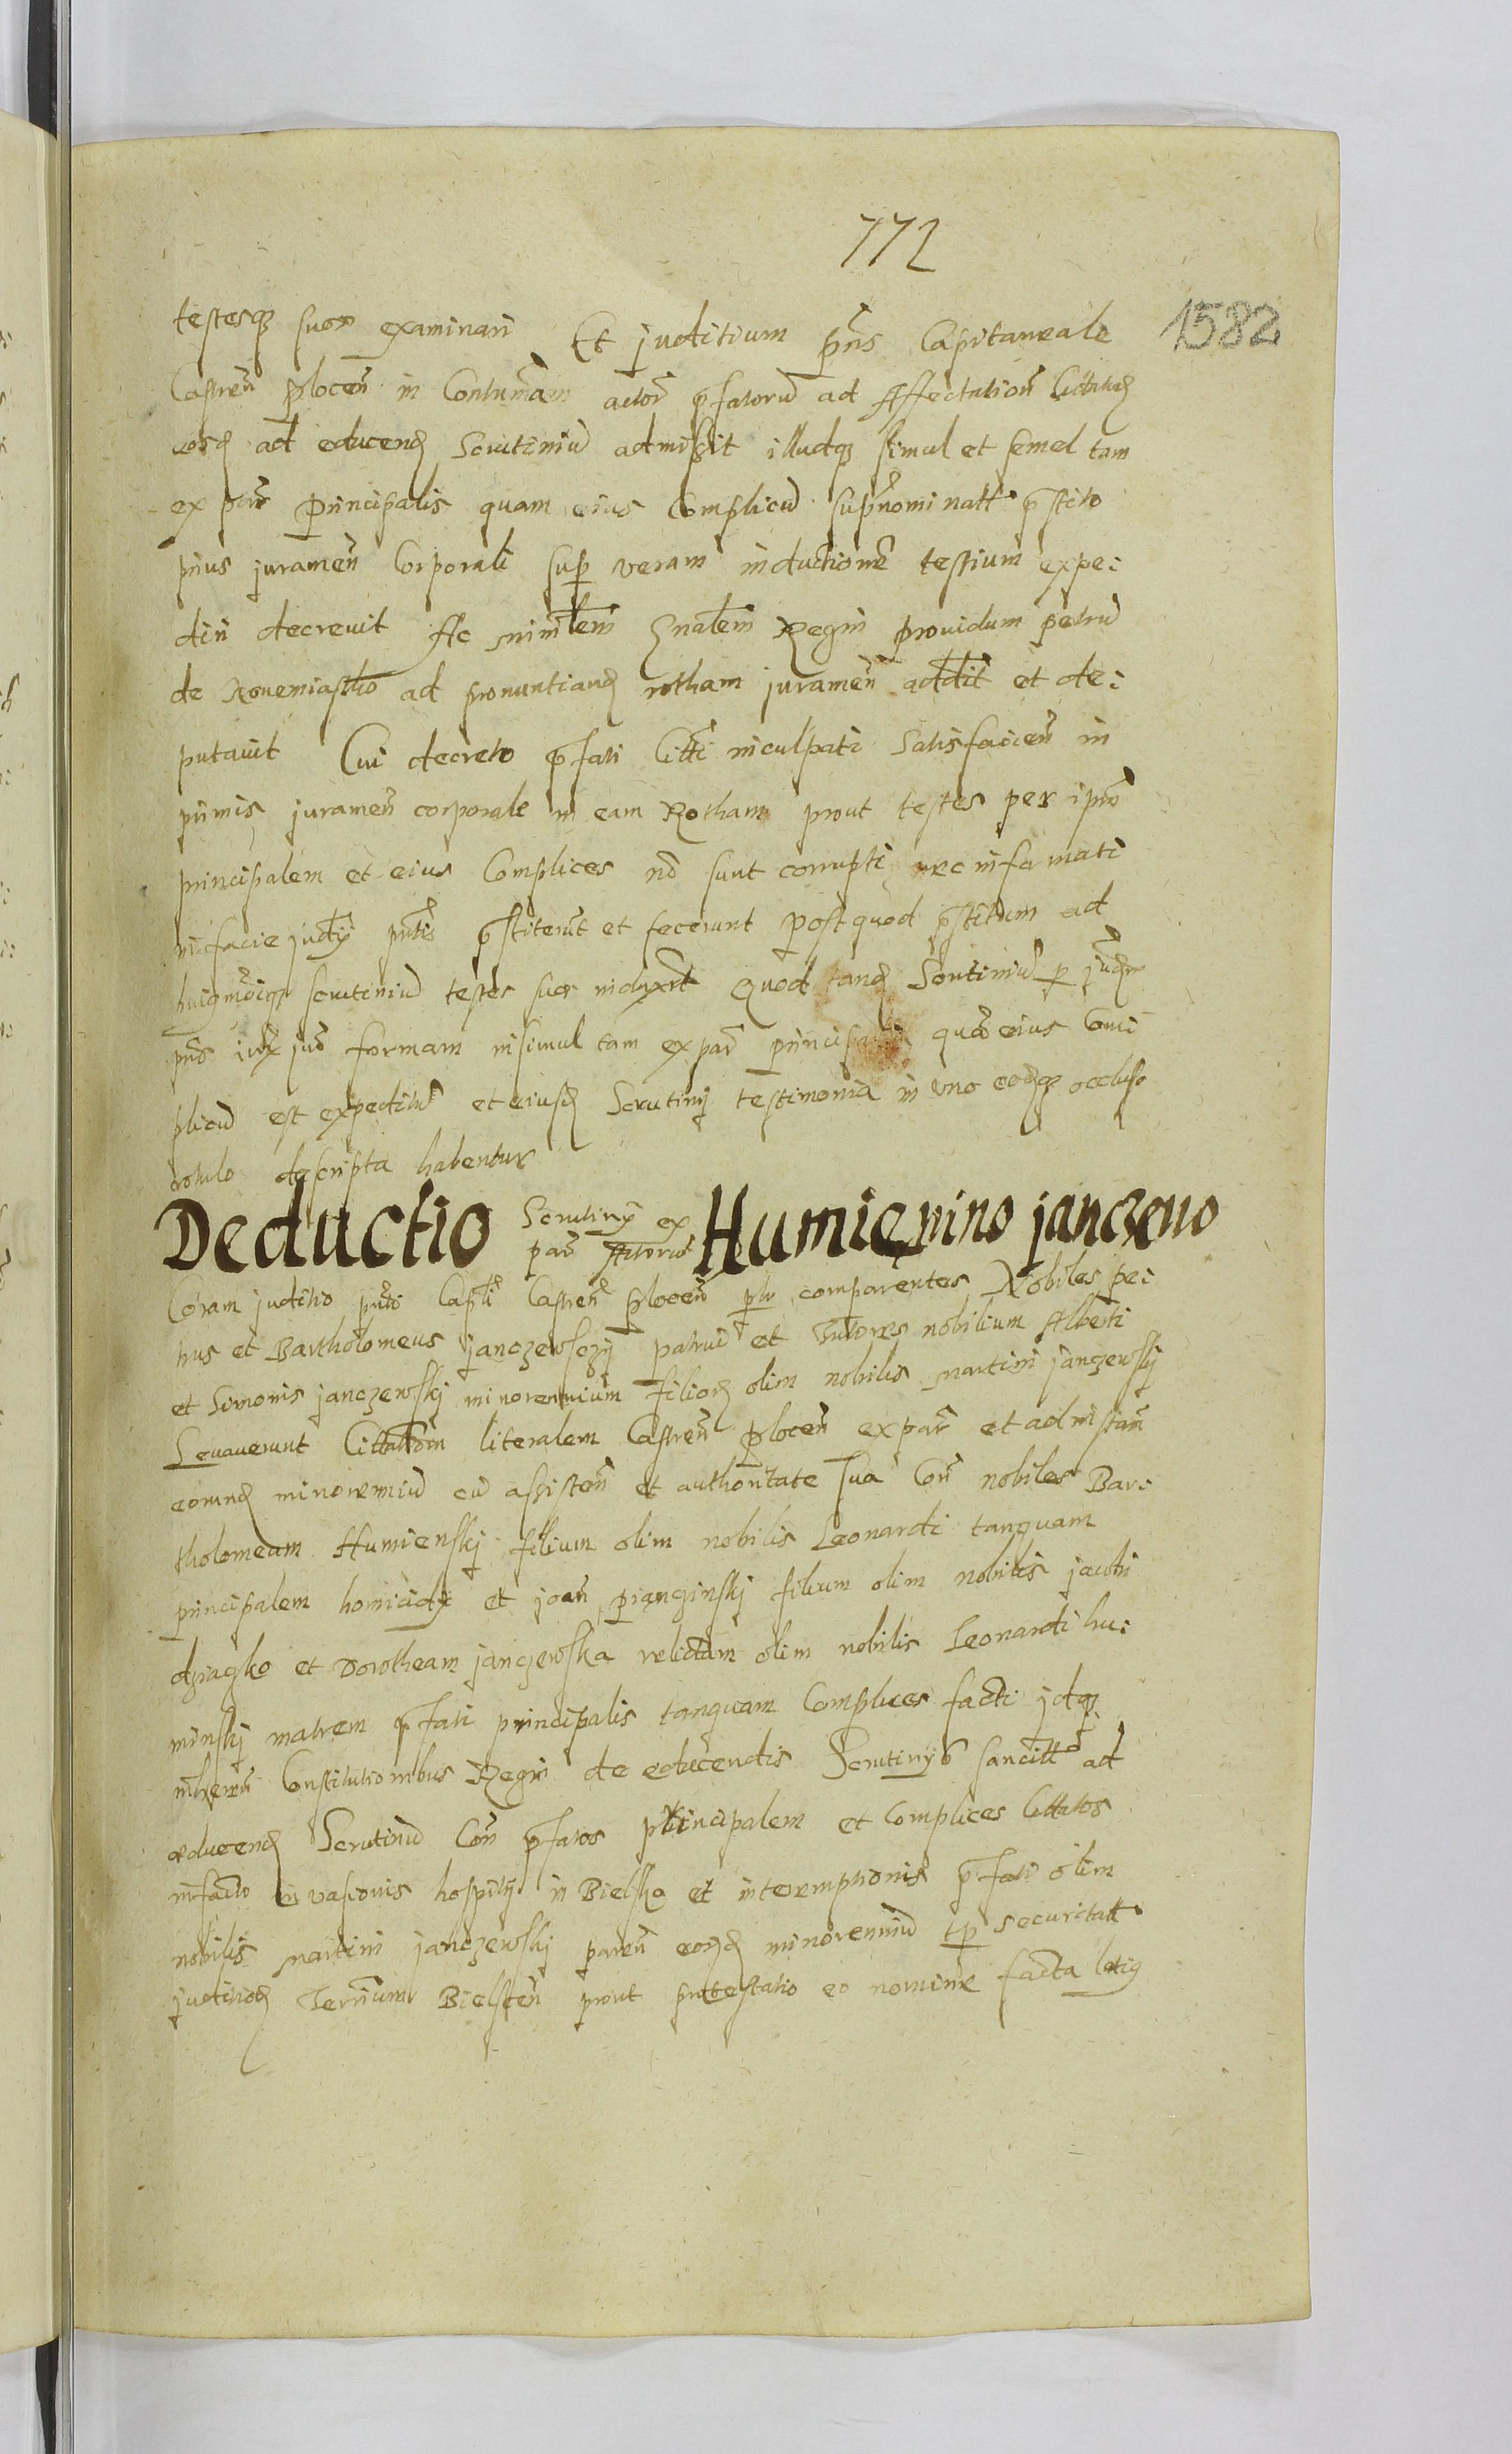 772
1582
testesq suos examinari Et juditium pñs Capitaneale
Castreñ ploceñ in Contumãm actor pfatorũ ad Affectationẽ Citator
eosd ad educend Scrutiniũ admißit illudq simul et semel tam
ex par principalis quam eius Complicũ supnominatt pstito
prius jurameñ Corporali sup veram inductionẽ testium expe:
diri decrevit Ac minĩlem Gnalem Regni providum petrũ
de Novemiastho ad pronuntiand rotham jurameñ addit et de:
putavit Cui decreto pfati Citti inculpati Satisfacieñ in
primis jurameñ corporale in eam Rotham prout testes per ipm
principalem et eius Complices nõ sunt corrupti nec informati
in facie judiy pntis pstiterũt et fecerunt post quod pstitum ad
huiqmõi scrutiniũ testes suos induxert Quod tand Scrutiniũ p judm
pns iux jur formam insimul tam ex par principalis quã eius Com:
plicũ est expeditũ et eiusd Scrutinij testimonia in uno eodq occluso
rotulo descripta habentur
Deductio Scrutiny ex par Actorũ Humięnino janczewo
Coram juditio pnti Capli Castreñ ploceñ plr comparentes Nobiles pe:
trus et Bartholomeus janczewsczij patrui et Tutores nobilium Alberti
et Simonis janczewskj minorennium filiord olim nobilis martini janczewskj
Levaverunt Cittationm literalem Castreñ ploceñ ex par et ad instañ
eorund minorenniũ cũ assisteñ et authoritate sua Con nobiles Bar:
tholomeum Humienskj filium olim nobilis Leonardi tanquam
principalem homicidy et joañ piączinskj filium olim nobilis jacobi
dziągko et Dorotheam janczewska relictam olim nobilis Leonardi hu:
minskj matrem pfati principalis tanquam Complices facti jdq
inhereñ Constitutionibus Regni de educendis Scrutinijs sancitt ad
educend Scrutiniũ Con pfatos principalem et Complices Cittatos
in facto invasionis hospitij in Bielska et interemptionis pfati olim
nobilis martini janczewskj pareñ eord minorenniũ tp securitatt
juditiord Terrium Bielsceñ prout protestatio eo nomine facta latig